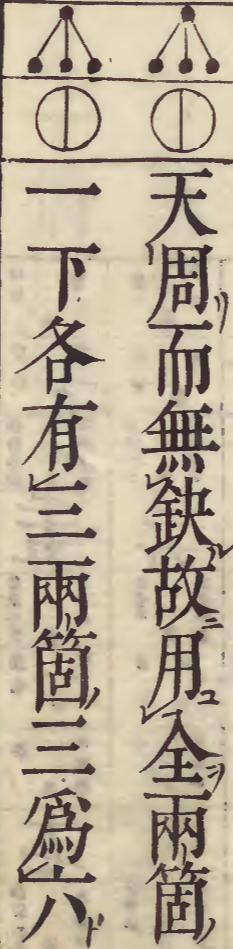 天周而無缺故用全兩箇
一下各有三兩箇三爲六